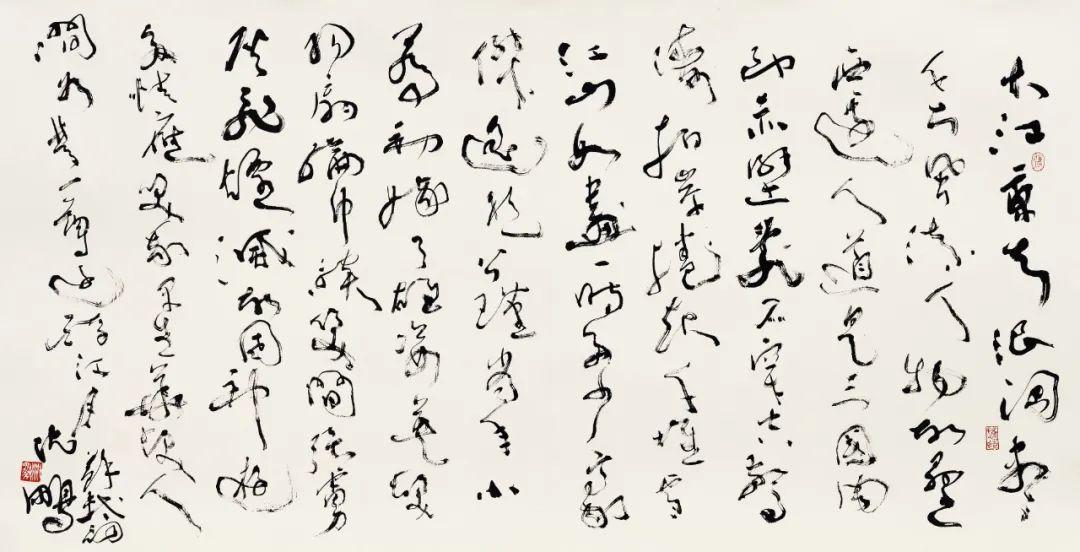 大江東去浪淘盡
千古風流人物故壘
西邊人道是三國周
郎赤壁亂石穿空驚
濤拍岸捲起千堆雪
江山如畫一時多少豪
傑遙想公瑾當年小
喬初嫁了雄姿英發
羽扇綸巾談笑間強虜
灰飛煙滅故國神遊
多情應笑我早生華髮人
間如夢一尊還酹江月
蘇軾詞
沈鵬